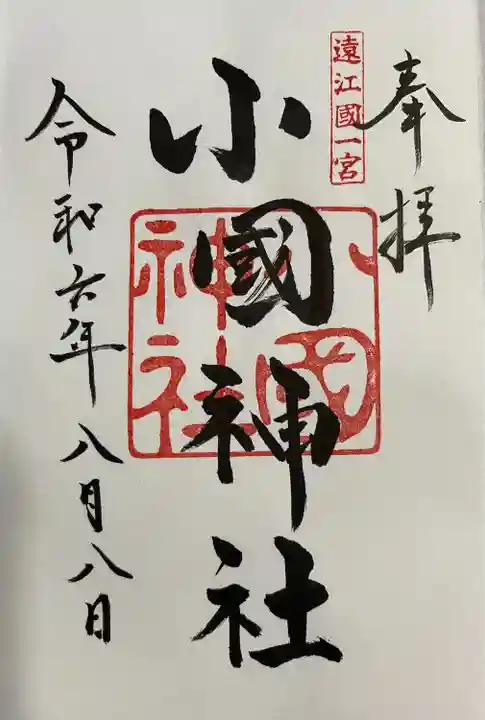 奉拝
遠江國一宮
小國神社
小國
神社
令和六年八月八日